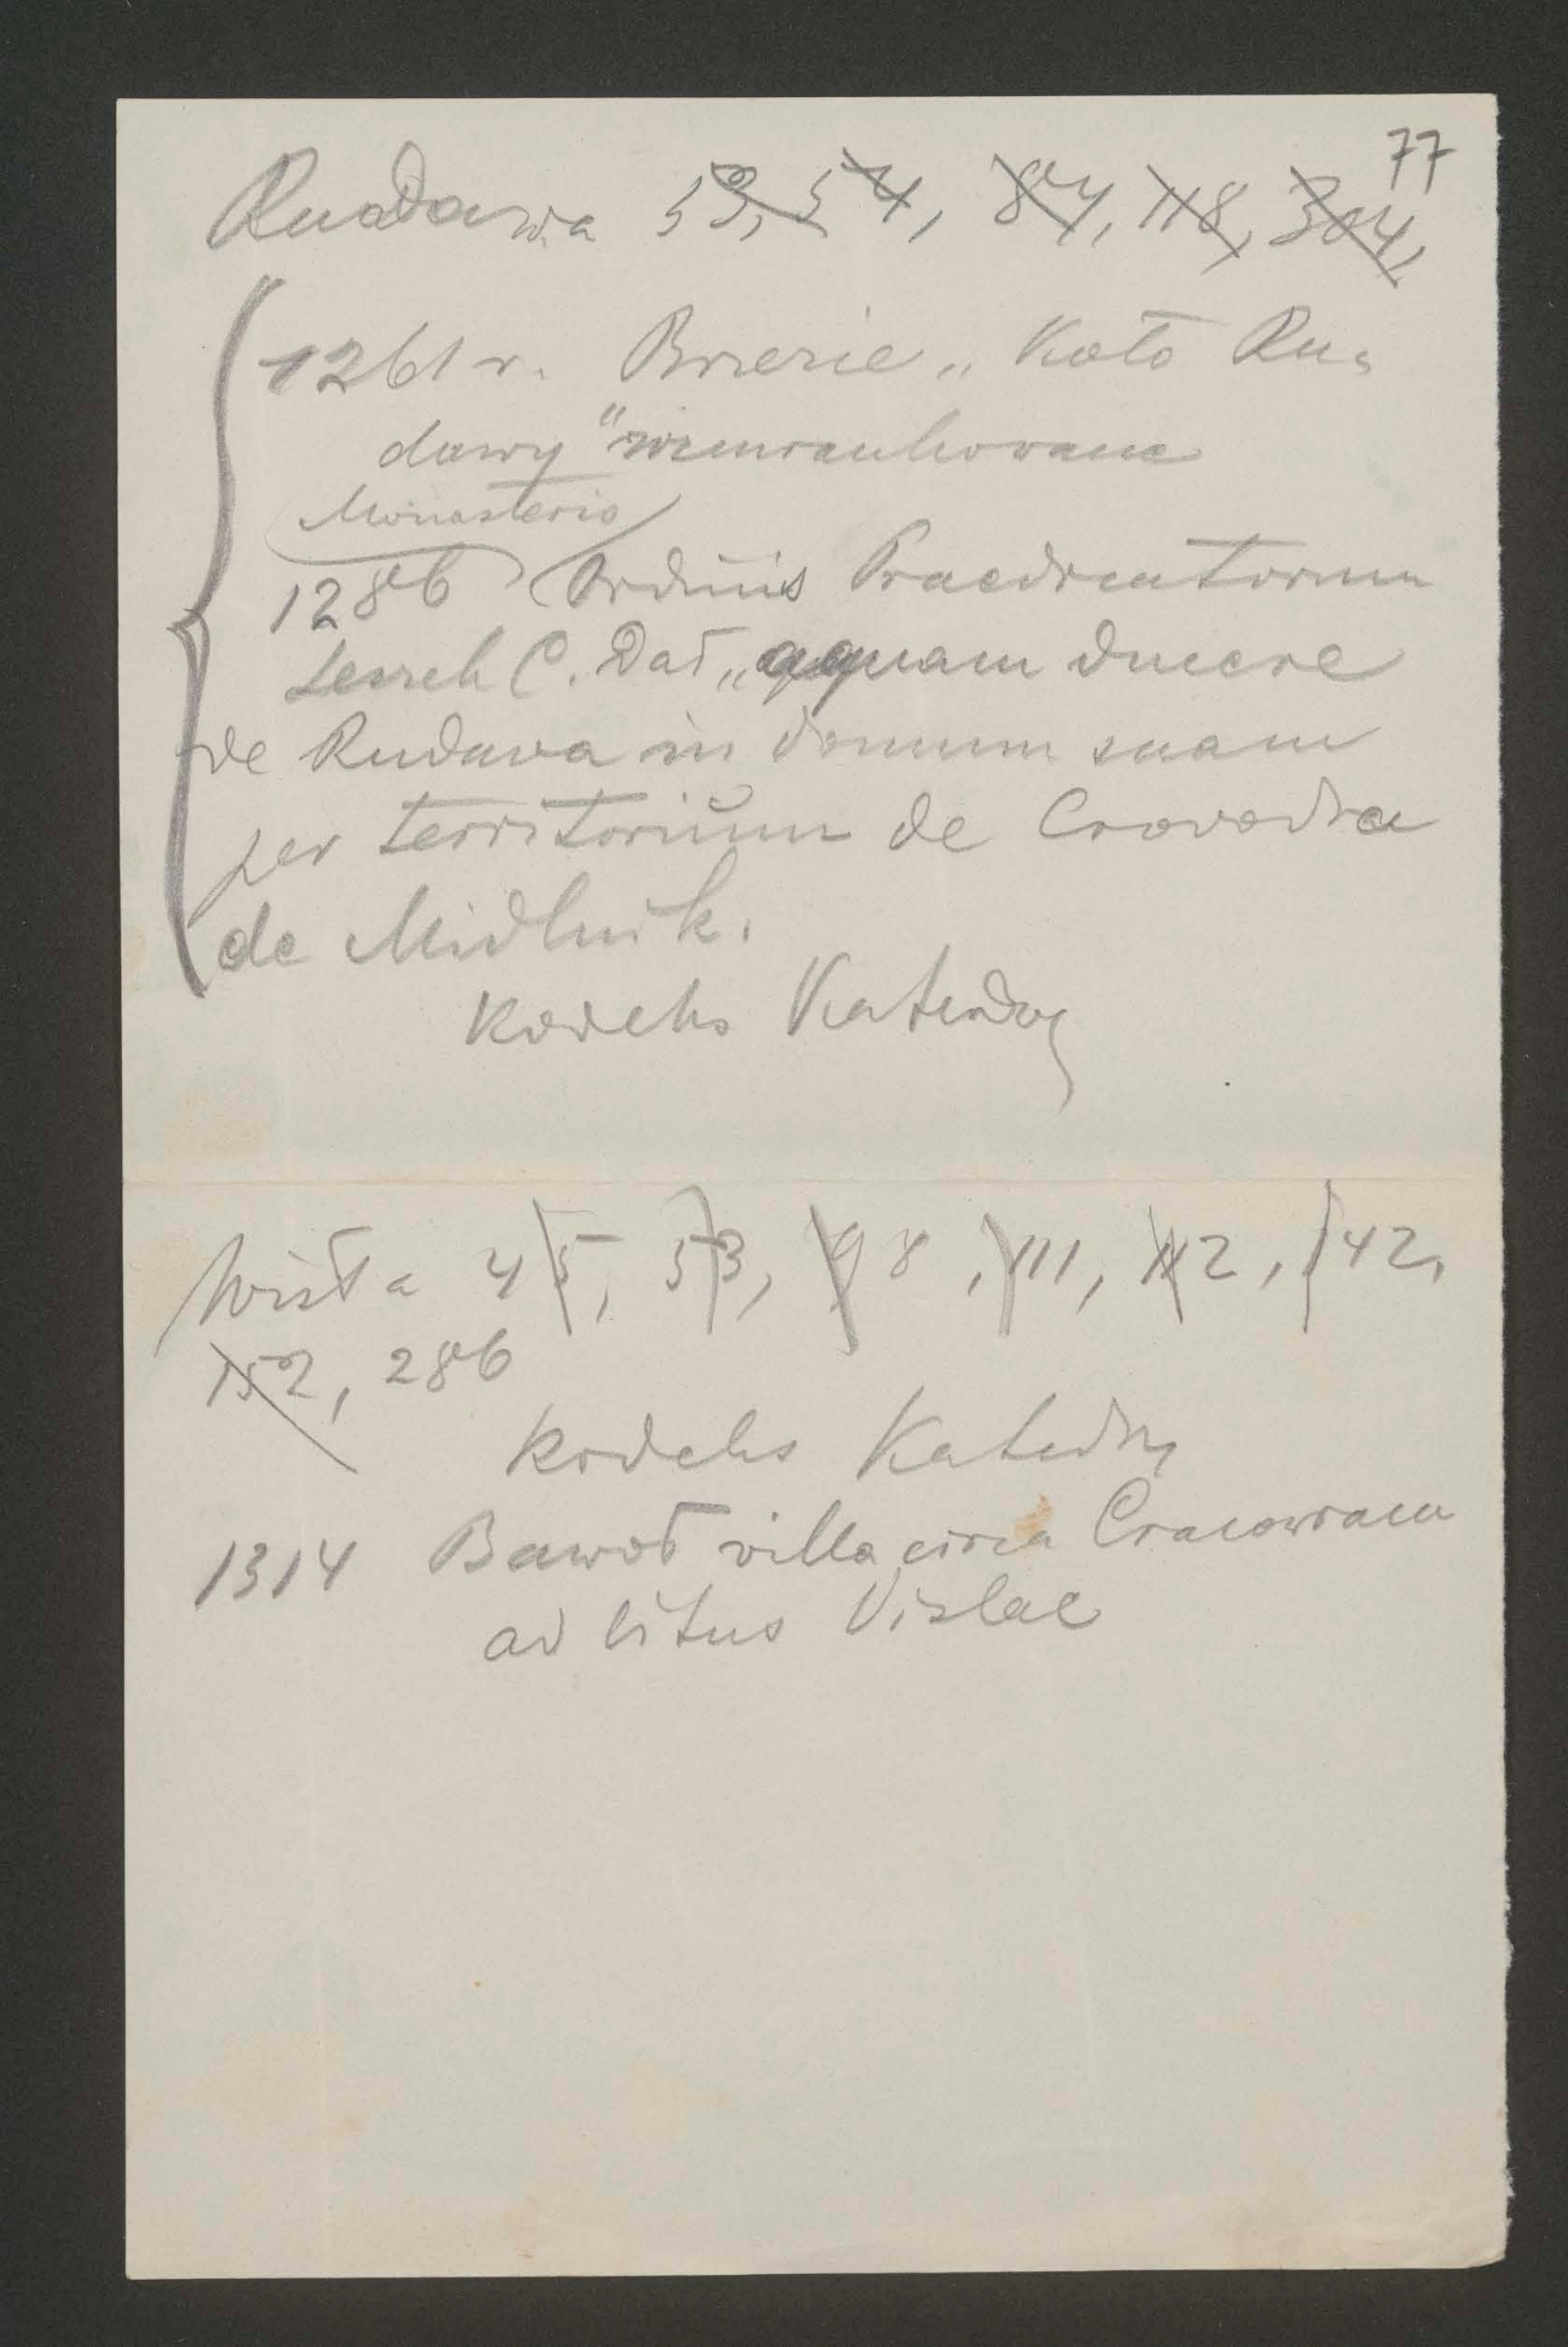 77
Rudawa 53, 54, 84, 118, 304,
1261 r. Brzezie „Koło Ru-
dawy"
Monasterio
1286 Ordinis Praedicatorum
Leszek C. Dat „aquam ducere
de Rudava in domum suam
per territorium de
de Midlnik.
Kodeks Katedry
Wisła 45, 53, 98, 111, 112, 142,
152, 286
Kodeks Katedry
1314 Bawoł villa circa Cracoviam
ad litus Vislae